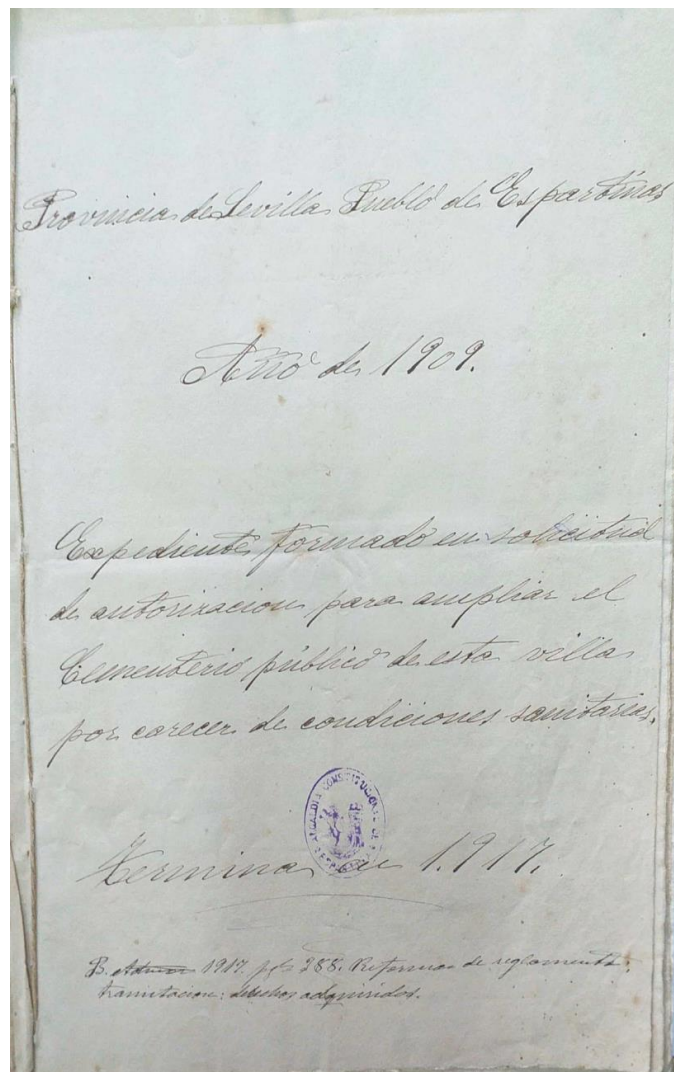 Provincia de Sevilla Pueblo de Espartinas
Año de 1909.
Expediente formado en solicitud
de autorizacion para ampliar el
Cementerio público de esta villa
por carecer de condiciones sanitarias.
ALCALDIA CONSTITUCIONAL DE ESPARTINAS
Termina en 1.917.
B. 1917. 288. Reforma de reglamento.
tramitacion: derechos adquiridos.